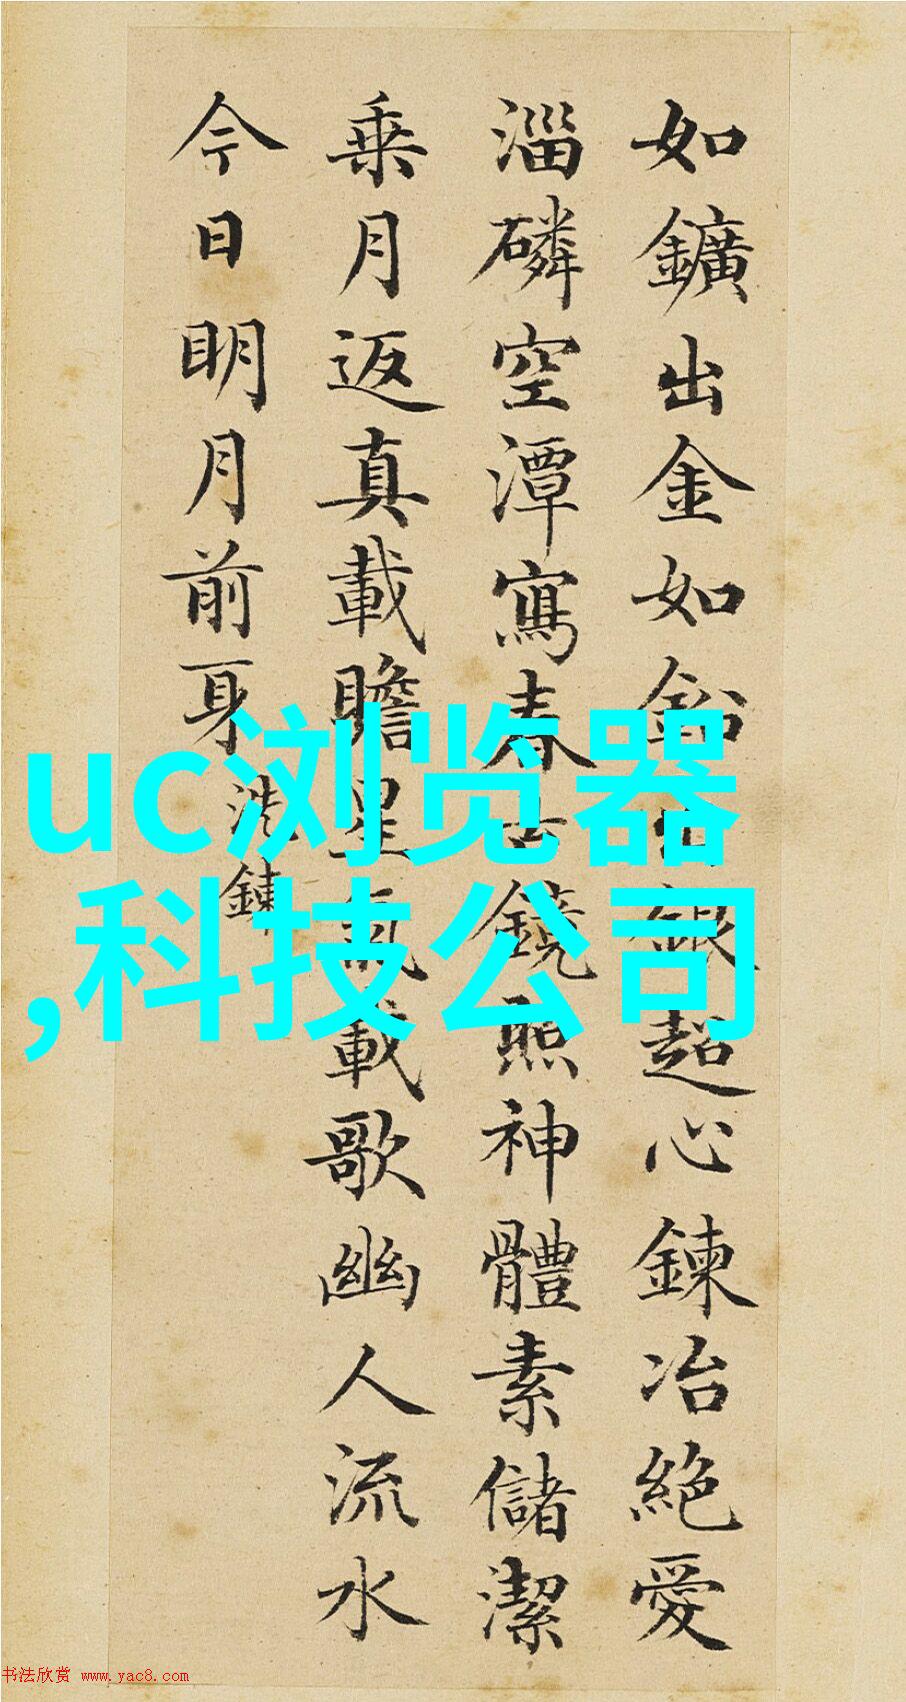 如鑛出金如鉛出銀超心鍊冶絕愛
淄磷空潭寫春古鏡照神體素儲潔
乗月返真載瞻星氣載歌幽人流水
今日明月前身
洗鍊
uc浏览器
,科技公司
书法欣赏 www.yac8.com